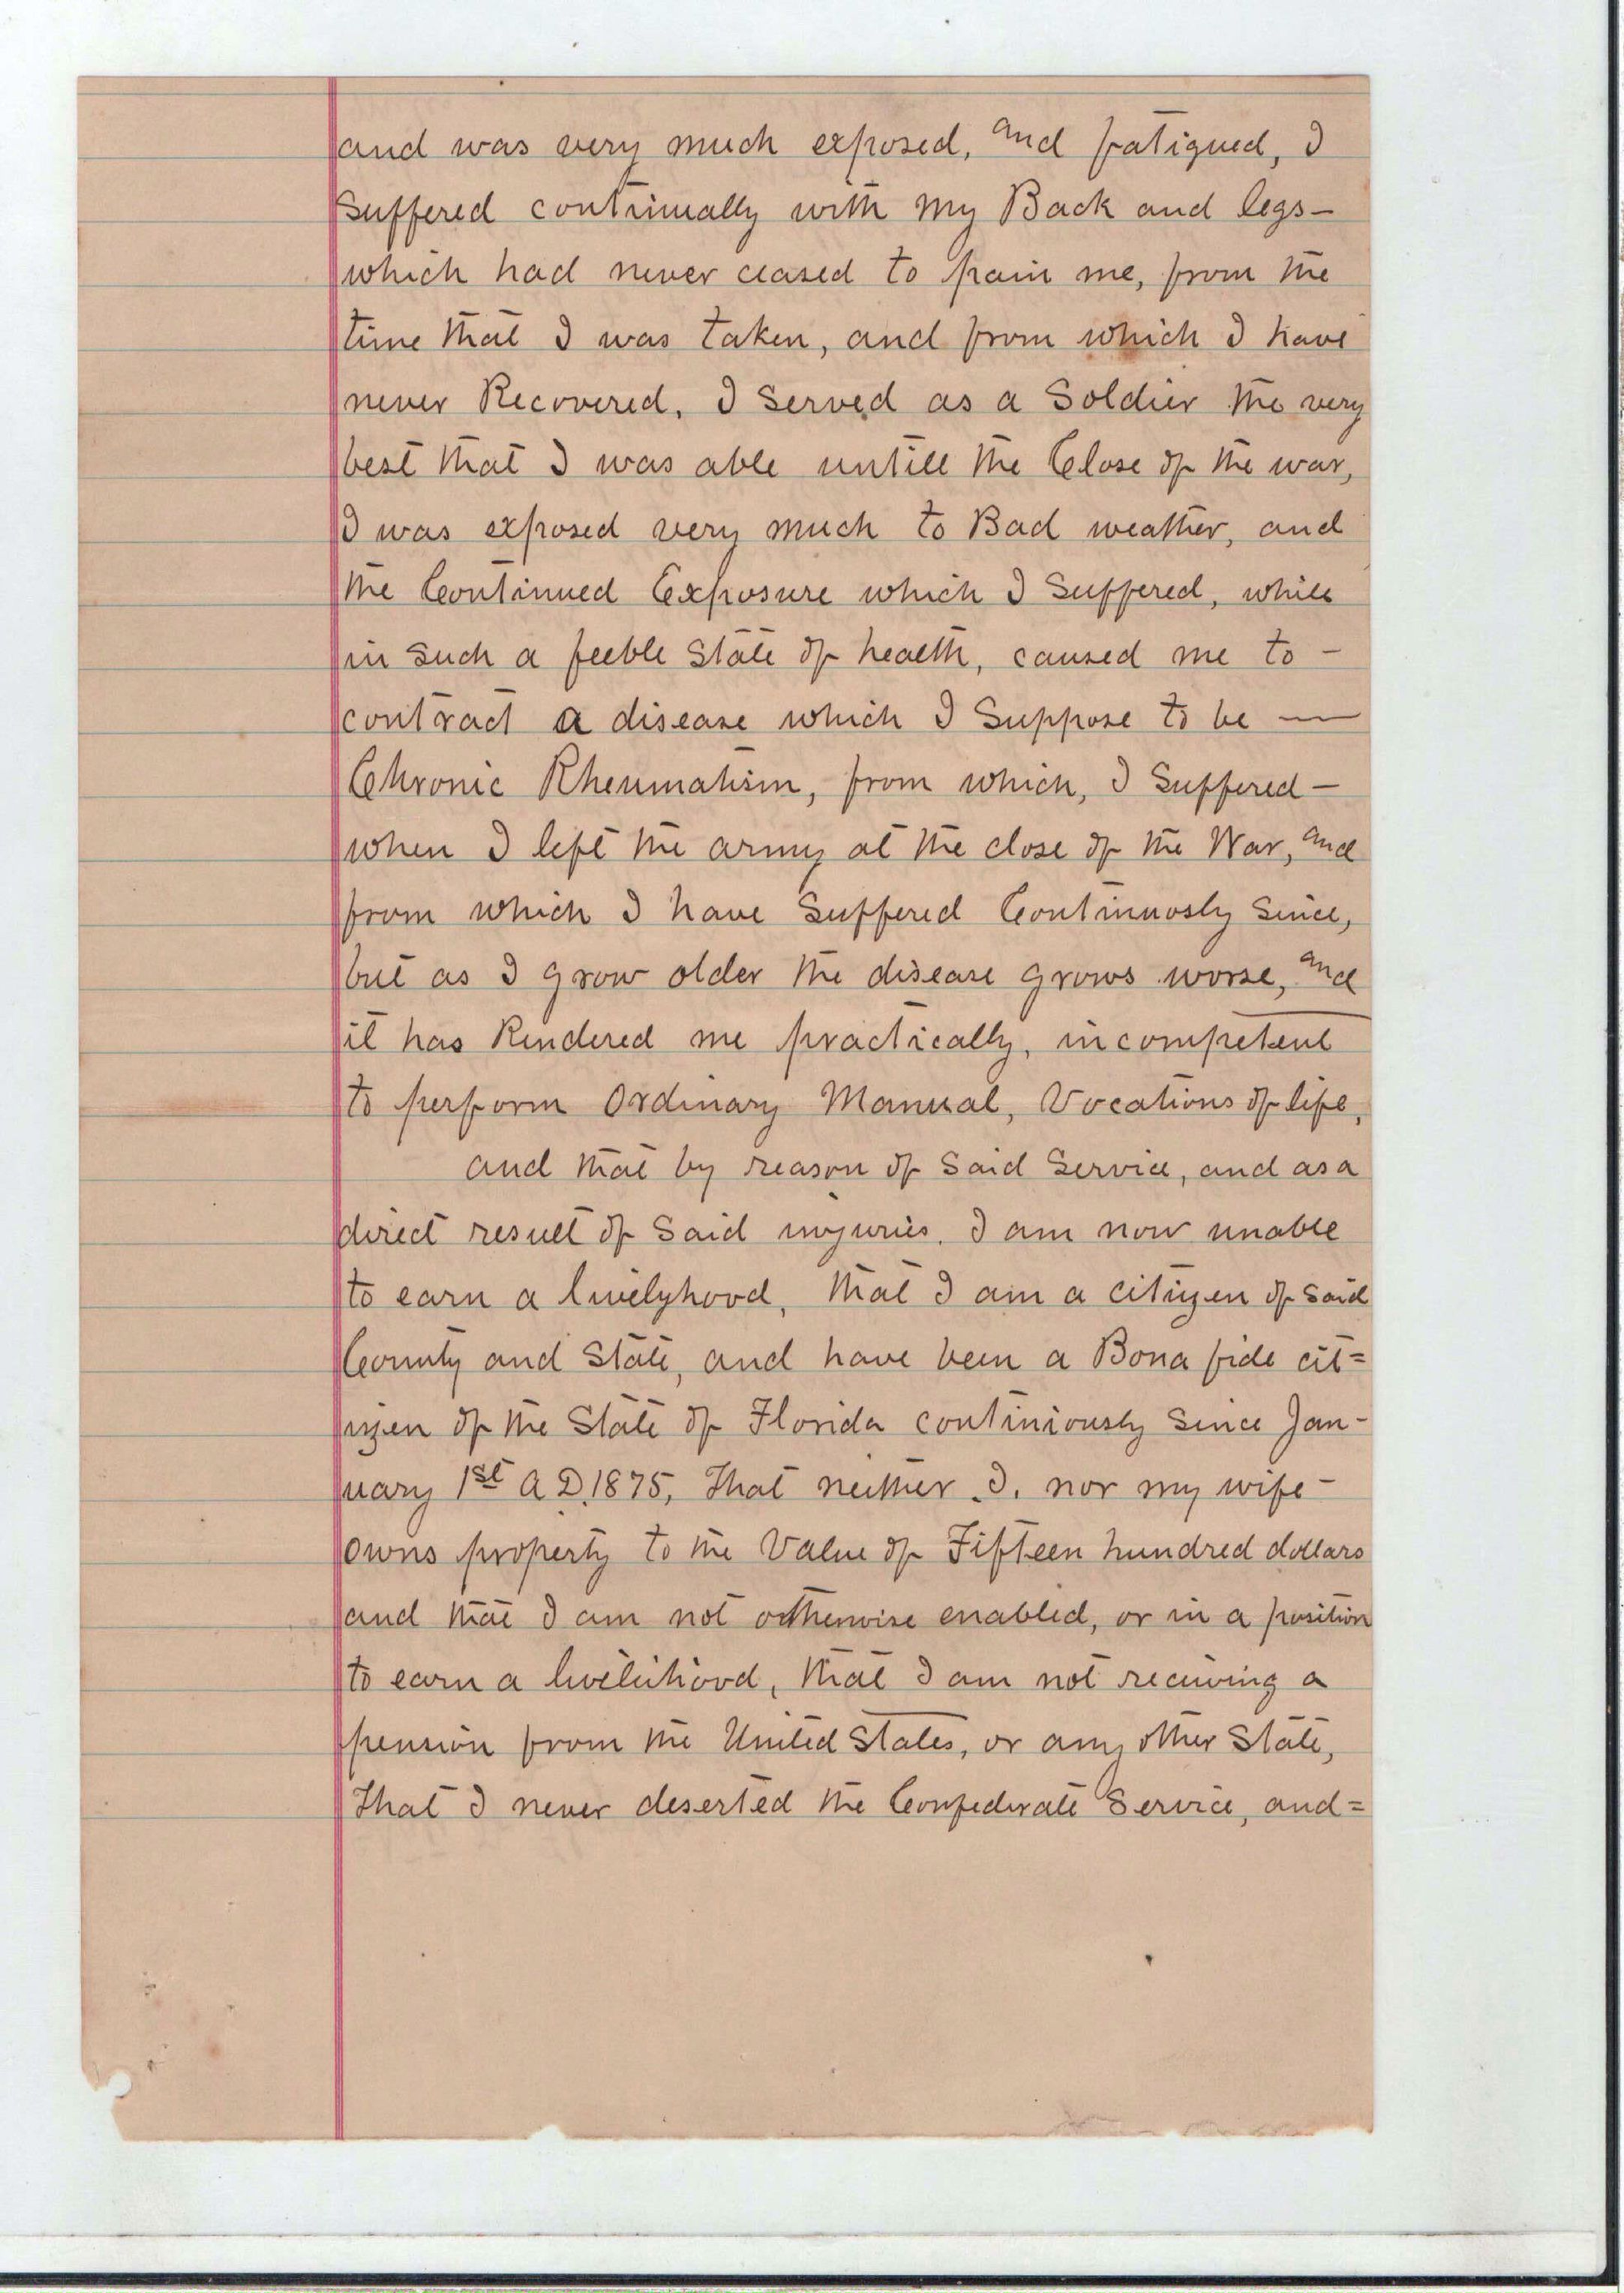 and was very much exposed, and fatigued, I
suffered continually with my Back and legs-
which had never ceased to pain me, from the
time that I was taken, and from which I have
never Recovered, I Served as a Soldier the very
best that I was able untill the Close of the war,
I was exposed very much to Bad weather, and
the Continued Exposure which I Suffered, while
in Such a feeble State of health, caused me to -
contract a disease which I Suppose to be —
Chronic Rheumatism, from which, I Suffered -
when I left the army at the close of the War, and
from which I have Suffered Continuosly Since,
but as I grow older the disease grows worse, and
it has Rendered me practically, incompetent
to perform Ordinary Manual, Vocations of life,
and that by reason of Said Service, and as a
direct result of Said injuries, I am now unable
to earn a livelyhood, that I am a citizen of Said
County and State, and have been a Bona fide cit=
izen of the State of Florida continiously Since Jan-
uary 1st A D, 1875, That neither I, nor my wife -
owns property to the Value of Fifteen hundred dollars
and that I am not otherwise enabled, or in a position
to earn a livelihood, that I am not receiving a
pension from the United States, or any other State,
That I never deserted the Confederate Service, and=